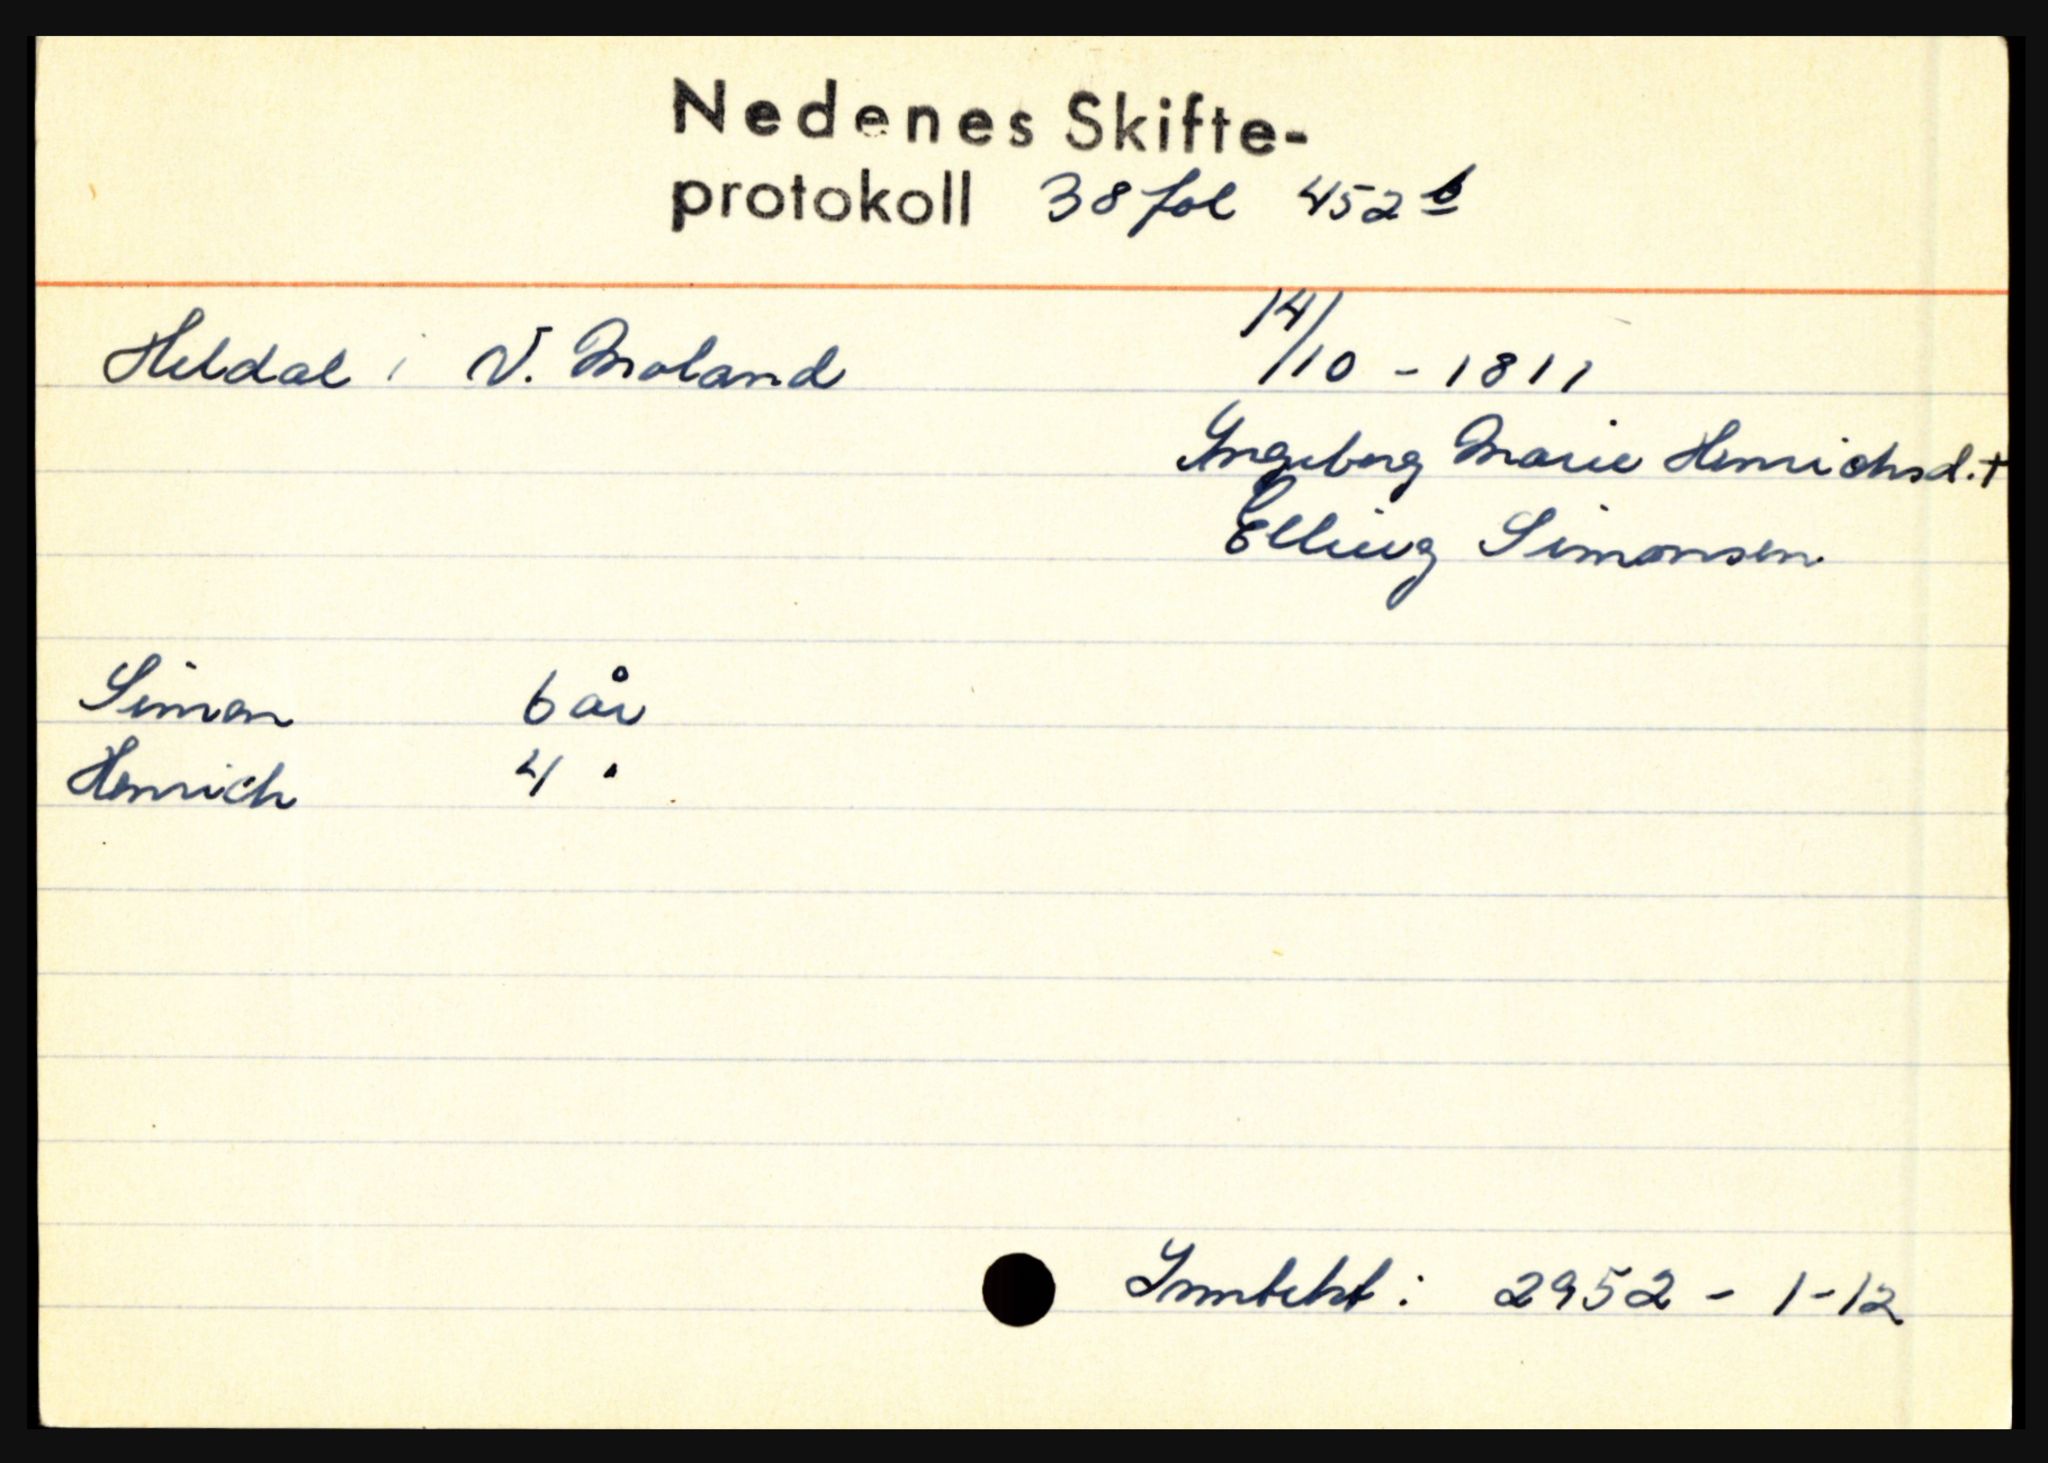 Nedenes Skifte-
protokoll 38 fol 452 b
Heldal i V. Moland 14/10 - 1811
Ingeborg Marie Henrichsd. †
Elling Simonsen
Simon 6 år
Henrich 4 "
Inntekt: 2952 - 1-12